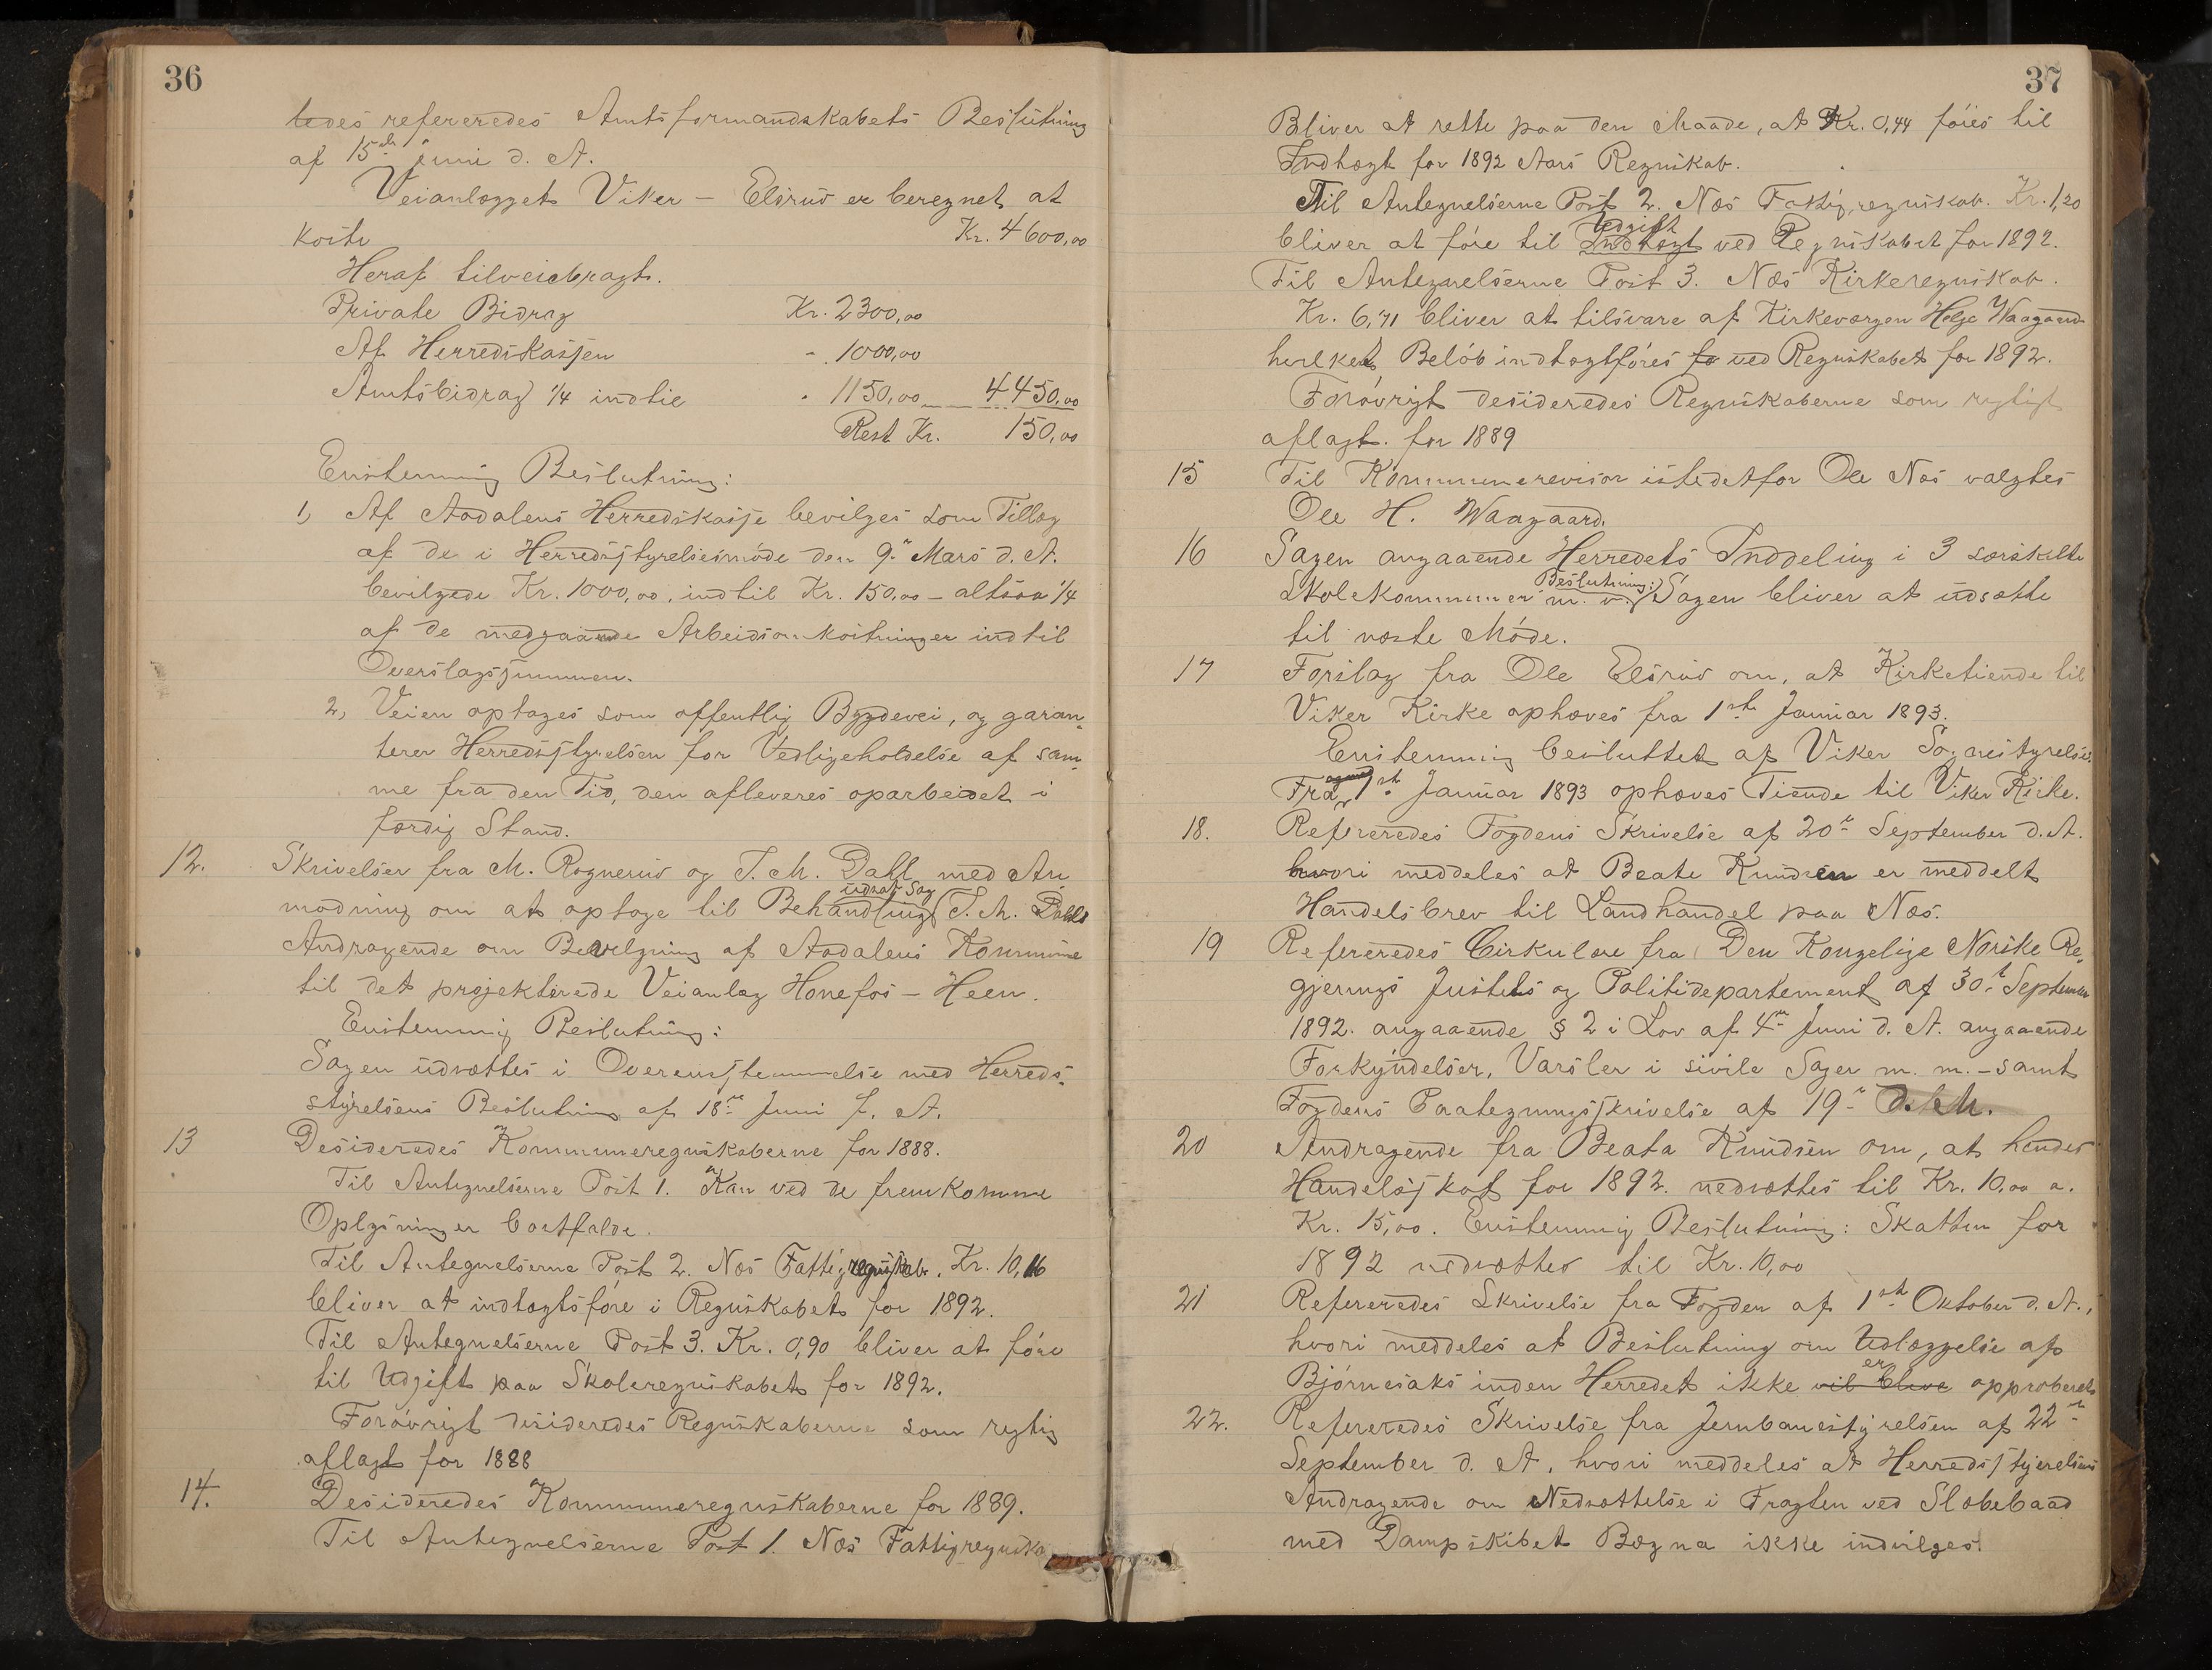 36
ledes refereredes Amtsformandskabets Beslutning
af 15de Juni d. A.
Veianlægget Viker – Elsrud er beregnet at
koste Kr. 4600,00
Heraf tilveiebragt.
Private Bidrag Kr. 2300,00
Af Herredskassen - 1000,00
Amtsbidrag 1/4 indtil - 1150,00 4450,00
Rest Kr. 150,00
Enstemmig Beslutning:
1, Af Aadalens Herredskasse bevilges som Tillæg
af de i Herredsstyrelsesmøde den 9de Mars d. A.
bevilgede Kr. 1000,00, indtil Kr. 150,00 – altsaa 1/4
af de medgaaende Arbeidsomkostninger indtil
Overslagssummen.
2, Veien optages som offentlig Bygdevei, og garan-
terer Herredsstyrelsen for Vedligeholdelse af sam-
me fra den Tid, den afleveres oparbeidet i
færdig Stand.
12. Skrivelser fra M. Rognerud og T. M. Dahl med An
modning om at optage til Behandling udsat Sag (T. M. Dahls
Andragende om Bevilgning af Aadalens Kommune
til det projekterede Veianlæg Hønefos – Heen.
Enstemmig Beslutning:
Sagen udsættes i Overensstemmelse med Herreds-
styrelsens Beslutning af 18de Juni f. A.
13 Desideredes Kommuneregnskaberne for 1888.
Til Antegnelserne Post 1. Kan ved de fremkomne
Oplysninger bortfalde.
Til Antegnelserne Post 2. Næs Fattigregnskab. Kr. 10,16
bliver at indtægtsføre i Regnskabet for 1892.
Til Antegnelserne Post 3. Kr. 0,90 bliver at føre
til Udgift paa Skoleregnskabet for 1892.
Forøvrigt desideredes Regnskaberne som rigtig
aflagt for 1888
14. Desideredes Kommuneregnskaberne for 1889.
Til Antegnelserne Post 1. Næs Fattigregnska
37
Bliver at rette paa den Maade, at Kr. 0,44 føies til
Indtægt for 1892 Aars Regnskab.
Til Antegnelserne Post 2. Næs Fattigregnskab. Kr. 1,20
Udgift
bliver at føre til Indtægt ved Regnskabet for 1892.
Til Antegnelserne Post 3. Næs Kirkeregnskab.
Kr. 6,71 bliver at tilsvare af Kirkeværgen Helge Waagaard
hvilket Beløb indtægtføres fo ved Regnskabet for 1892.
Forøvrigt desideredes Regnskaberne som rigtigt
aflagt. for 1889
15 Til Kommunerevisor istedetfor Ole Næs valgtes
Ole H. Waagaard.
16 Sagen angaaende Herredets Inddeling i 3 særskilte
Beslutning:
Skolekommuner m. v. Sagen bliver at udsætte
til næste Møde.
17 Forslag fra Ole Elsrud om, at Kirketiende til
Viker Kirke ophæves fra 1ste Januar 1893.
Enstemmig besluttet af Viker Sognestyrelse.
Fra 1ste Januar 1893 ophæves Tiende til Viker Kirke.
18. Refereredes Fogdens Skrivelse af 20de September d. A.
hvori meddeles at Beate Knudsen er meddelt
Handelsbrev til Landhandel paa Næs.
19 Refereredes Cirkulære fra Den Kongelige Norske Re-
gjerings Justits og Politidepartement af 30te September
1892. angaaende § 2 i Lov af 4de Juni d. A. angaaende
Forkyndelser, Varsler i sivile Sager m. m. – samt
Fogdens Paategningsskrivelse af 19de d. M.
20 Andragende fra Beata Knudsen om, at hendes
Handelsskat for 1892. nedsættes til Kr. 10,00 a.
Kr. 15,00. Enstemmig Beslutning: Skatten for
1892 nedsættes til Kr. 10,00
21 Refereredes Skrivelse fra Fogden af 1ste Oktober d. A.,
hvori meddeles at Beslutning om Udlæggelse af
er
Bjørnesaks inden Herredet ikke vil blive approberet
22. Refereredes Skrivelse fra Jernbanestyrelsen af 22de
September d. A. hvori meddeles at Herredsstyrelsens
Andragende om Nedsættelse i Fragten ved Slæbebaad
med Dampskibet Bægna ikke indvilges.